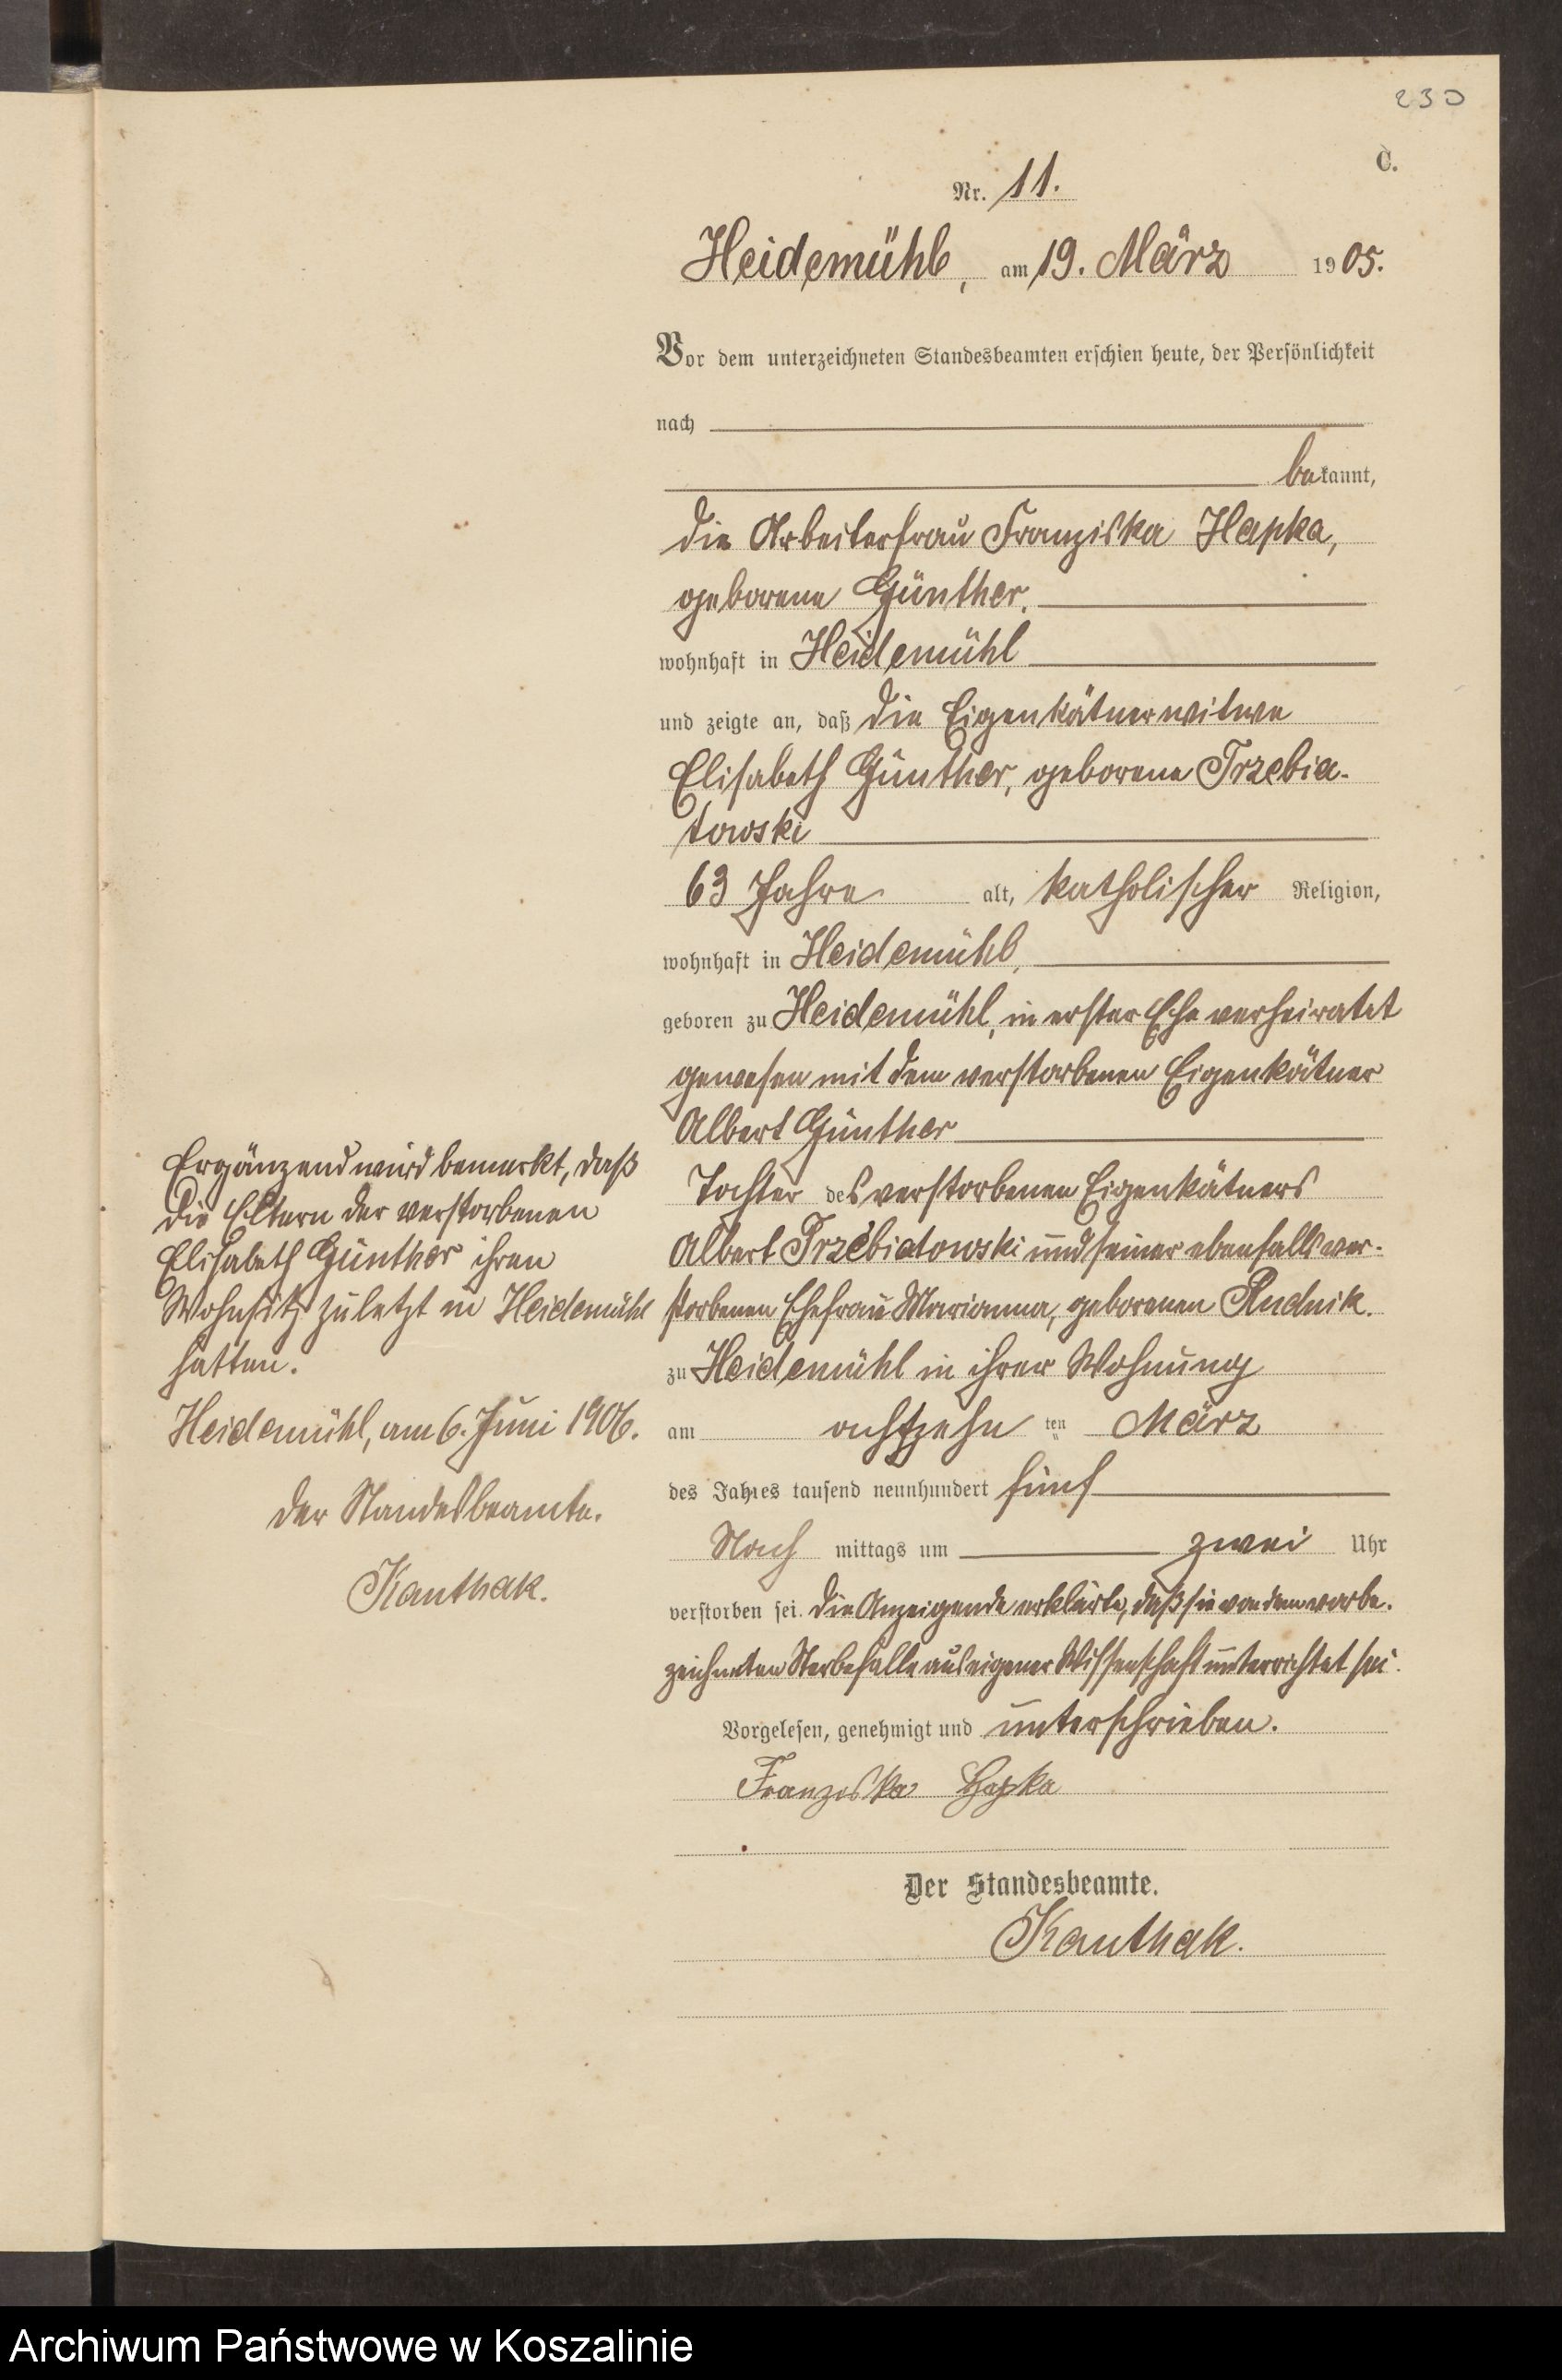 230
C.
Nr. 11.
Heidemühl, am 19. März 1905.
Vor dem unterzeichneten Standesbeamten erschien heute, der Persönlichkeit
nach
bekannt,
die Arbeiterfrau Franziska Hapka,
geborene Günther,
wohnhaft in Heidemühl
und zeigte an, daß die Eigenkätnerwitwe
Elisabeth Günther, geborene Trzebia-
towski
63 Jahre alt, katholischer Religion,
wohnhaft in Heidemühl,
geboren zu Heidemühl, in erster Ehe verheiratet
gewesen mit dem verstorbenen Eigenkätner
Albert Günther
Tochter des verstorbenen Eigenkätners
Albert Trzebiatowski und seiner ebenfalls ver-
storbenen Ehefrau Marianna, geborenen Rudnik.
zu Heidemühl in ihrer Wohnung
am achtzehnten März
des Jahres tausend neunhundert fünf
Nachmittags um zwei Uhr
verstorben sei. Die Anzeigende erklärte, daß sie von dem vorbe-
zeichneten Sterbefalle aus eigener Wissenschaft unterrichtet sei.
Vorgelesen, genehmigt und unterschrieben.
Franziska Hapka
Der Standesbeamte.
Kanthak.
Ergänzend wird bemerkt, daß
die Eltern der verstorbenen
Elisabeth Günther ihren
Wohnsitz zuletzt in Heidemühl
hatten.
Heidemühl, am 6. Juni 1906.
Der Standesbeamte.
Kanthak.
Archiwum Państwowe w Koszalinie